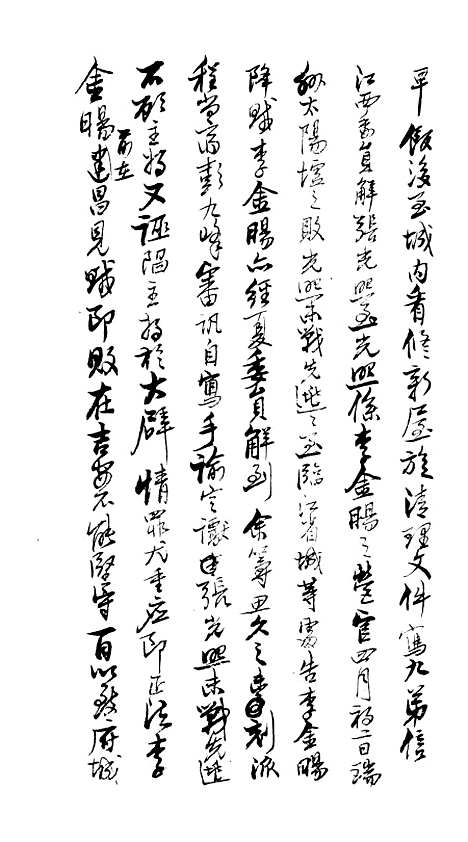 早飯後至城內看修新屋旋清理文件寫九弟信
江西委員解張光照至光照係李金暘之營官四月初二日瑞
州太陽墟之敗光照未戰先逃之至臨江省城等處告李金暘
降賊李金暘亦經夏委員解到余籌思久之未刻派
程尚齋彭九峰審訊自寫手諭定讞張光照未戰先逃
不顧主將又誣陷主將於大辟情罪尤重應即正法李
金暘前在建昌見賊即敗在吉安不能堅守百以致府城